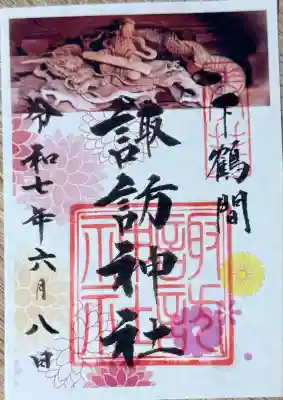 下鶴間
諏訪神社
令和七年六月八日
諏訪神社